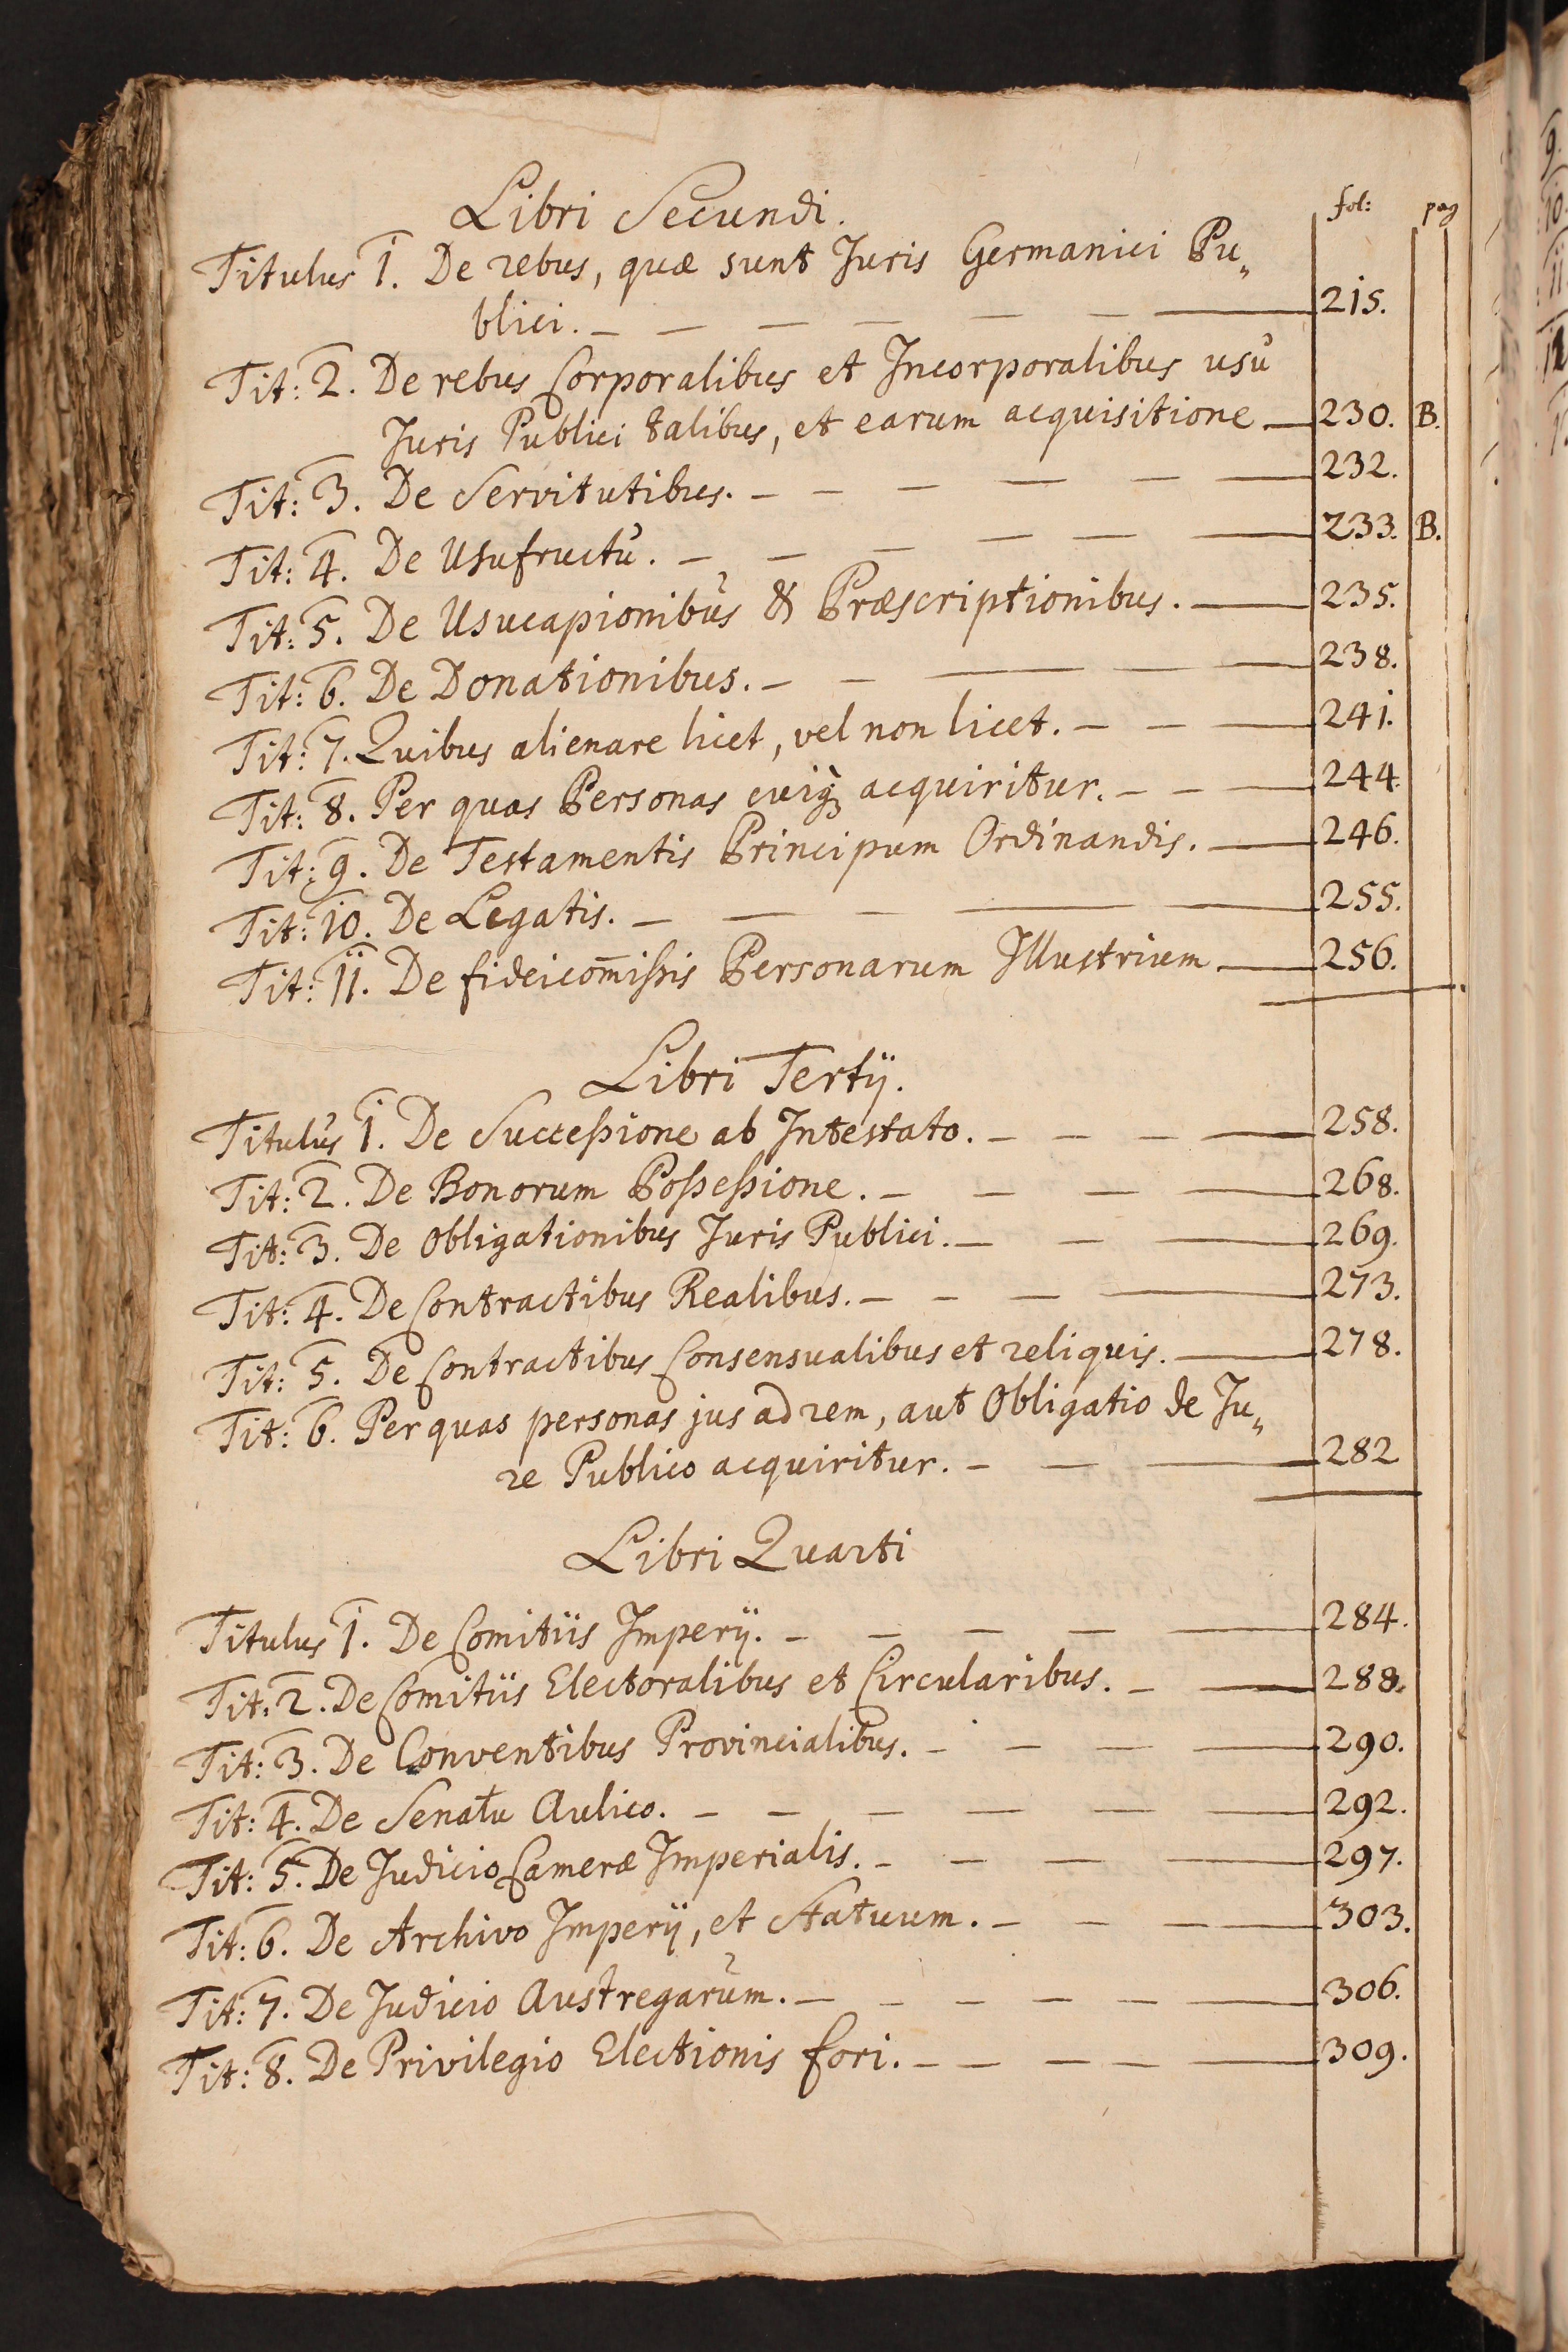 Libri Secundi. fol: pag
Titulus 1. De rebus, quæ sunt Juris Germanici Pu„
blici. — — — — — — — 215.
Tit: 2. De rebus Corporalibus et Incorporalibus usu
Juris Publici talibus, et earum acquisitione — 230. B.
Tit: 3. De Servitutibus. — — — — — — 232.
Tit: 4. De Usufructu. — — — — — — 233. B.
Tit: 5. De Usucapionibus & Præscriptionibus. — 235.
Tit: 6. De Donationibus. — — — — — 238.
Tit: 7. Quibus alienare licet, vel non licet. — — — 241.
Tit: 8. Per quas Personas cuiq3 acquiritur. — — — 244.
Tit: 9. De Testamentis Principum Ordinandis. — 246.
Tit: 10. De Legatis. — — — — — 255.
Tit: 11. De fideicom̅ißis Personarum Illustrium — 256.
Libri Tertij.
Titulus 1. De Succeßione ab Intestato. — — — — 258.
Tit: 2. De Bonorum Poßeßione. — — — — 268.
Tit: 3. De Obligationibus Juris Publici. — — — 269.
Tit: 4. De Contractibus Realibus. — — — — 273.
Tit: 5. De Contractibus Consensualibus et reliquis. — 278.
Tit: 6. Per quas personas jus ad rem, aut Obligatio de Ju„
re Publico acquiritur. — — — 282
Libri Quarti
Titulus 1. De Comitiis Imperij. — — — — — 284.
Tit: 2. De Comitiis Electoralibus et Circularibus. — — 288.
Tit: 3. De Conventibus Provincialibus. — — — — 290.
Tit: 4. De Senatu Aulico. — — — — — — 292.
Tit: 5. De Judicio Cameræ Imperialis. — — — — 297.
Tit: 6. De Archivo Imperij, et Statuum. — — — — 303.
Tit: 7. De Judicio Austregarum. — — — — — — 306.
Tit: 8. De Privilegio Electionis fori. — — — — — 309.